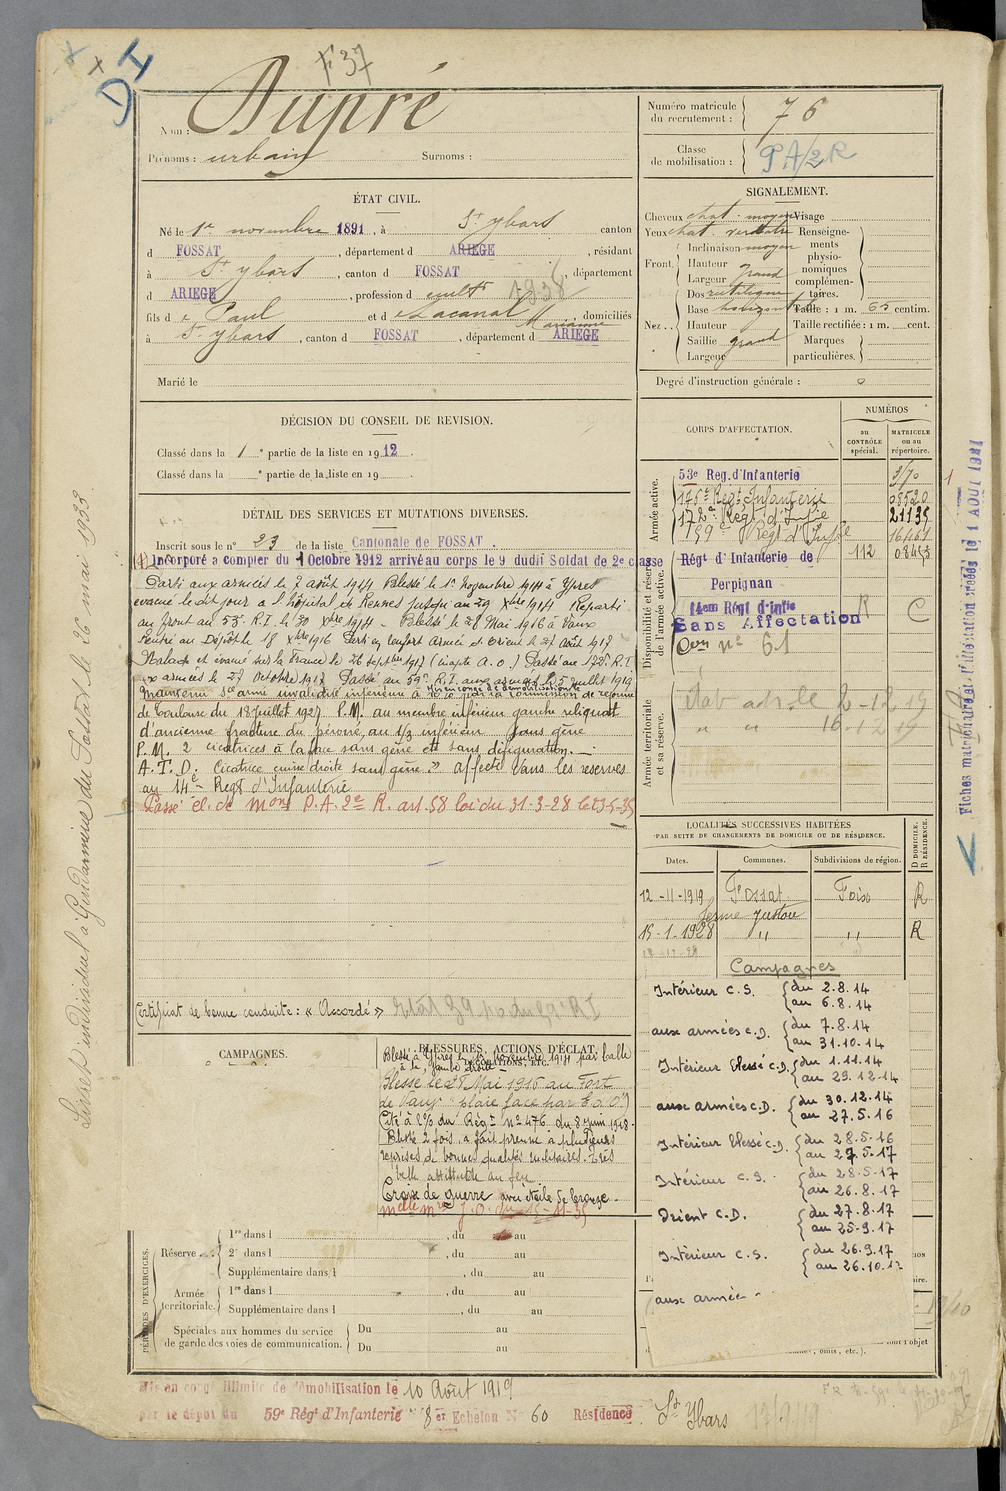 F 37
Nom : Dupré
Prénoms : urbain Surnoms :
Numéro matricule du recrutement : 76
Classe de mobilisation : PA/2R
ÉTAT CIVIL.
Né le 1er novembre 1891, à St Ybars canton
d FOSSAT, département d ARIEGE, résidant
à St Ybars, canton d FOSSAT, département
d ARIEGE, profession de cultr 1938
fils de Paul et de Lacanal Marianne, domiciliés
à St Ybars, canton d FOSSAT, département d ARIEGE
Marié le
SIGNALEMENT.
Cheveux chat. moyen Visage
Yeux chat. verdatre Renseignements physionomiques complémentaires.
Front. Inclinaison moyen
Hauteur
Largeur grand
Nez.. Dos rectiligne
Base horizontale Taille : 1 m. 65 centim.
Hauteur Taille rectifiée : 1 m. cent.
Saillie grand Marques particulières.
Largeur
Degré d'instruction générale :
DÉCISION DU CONSEIL DE REVISION.
Classé dans la 1e partie de la liste en 1912.
Classé dans la e partie de la liste en 19
DÉTAIL DES SERVICES ET MUTATIONS DIVERSES.
Inscrit sous le n° 23 de la liste Cantonale de FOSSAT.
Incorporé a compter du 1 Octobre 1912 arrivé au corps le 9 dudit Soldat de 2e classe
Parti aux armées le 2 août 1914 Blessé le 1er Novembre 1914 à Ypres
évacué le dit jour à l'hôpital de Rennes jusqu'au 29 Xbre 1914 Reparti
au front au 53e R.I. le 30 Xbre 1914 - Blessé le 28 Mai 1916 à Vaux
Rentré au Dépôt le 18 Xbre 1916 Parti en renfort Armée d'Orient le 27 Août 1917
Malade et évacué sur la France le 26 septbre 1917 (inapte A.O.) Passé au 172e R.I.
aux armées le 27 octobre 1917 Passé au 59e R.I. aux armées le 5 juillet 1919
Mis en congé de démobilisation
Maintenu Sce armé invalidité inférieure à 10% par la Commission de réforme
de Toulouse du 18 juillet 1927 P.M. au membre inférieur gauche reliquat
d'ancienne fracture du péroné, au 1/3 inférieur sans gêne
P.M. 2 cicatrices à la face sans gêne et sans défiguration.
A.T.D. Cicatrice cuisse droite sans gêne. » affecté dans les réserves
au 14e Régt d'Infanterie
Passé cl. de mon P.A. 2e R. art. 58 loi du 31-3-28 le 13-5-35
Certificat de bonne conduite : « Accordé »
CORPS D'AFFECTATION.
NUMÉROS
au CONTRÔLE spécial.
MATRICULE ou au répertoire.
Armée active.
53e Reg. d'Infanterie 3170
175e Régt Infanterie 08520
172e Régt d'Infie 21135
159e Régt d'Infie 16461
Disponibilité et réserve de l'armée active.
Régt d'Infanterie de Perpignan 112 08453
14em Régt d'infie
Sans Affectation R C
Don n° 61
Armée territoriale et sa réserve.
2-12-19
" " 16-12-19
LOCALITÉS SUCCESSIVES HABITÉES
PAR SUITE DE CHANGEMENTS DE DOMICILE OU DE RÉSIDENCE.
Dates. Communes. Subdivisions de région. D DOMICILE. R RÉSIDENCE.
12-11-1919 Fossat Foix R
ferme Justou
15-1-1928 " " R
Campagnes
Intérieur C.S. du 2.8.14 au 6.8.14
aux armées C.D. du 7.8.14 au 31.10.14
Intérieur blessé C.D. du 1.11.14 au 29.12.14
aux armées C.D. du 30.12.14 au 27.5.16
Intérieur blessé C.D. du 28.5.16 au 27.5.17
Intérieur C.S. du 28.5.17 au 26.8.17
Orient C.D. du 27.8.17 au 25.9.17
Intérieur C.S. du 26.9.17 au 26.10.17
aux armée -
CAMPAGNES.
BLESSURES, ACTIONS D'ÉCLAT, DÉCORATIONS, ETC.
Blessé à Ypres le 1er Novembre 1914 par balle
à la jambe droite
Blessé le 28 Mai 1916 au Fort
de Vaux "plaie face par E.O."
Cité à l'O/ du Régt n° 476 du 8 juin 1918.
Blessé 2 fois, a fait preuve à plusieurs
reprises de bonnes qualités militaires. Très
belle attitude au feu.
Croix de guerre avec étoile de bronze.
melle mre J.O. du 15-11-35
PÉRIODES D'EXERCICES.
Réserve. 1re dans l , du au
2e dans l , du au
Supplémentaire dans l , du au
Armée territoriale. 1re dans l , du au
Supplémentaire dans l , du au
Spéciales aux hommes du service de garde des voies de communication. Du au
Du au
Mis en congé illimité de démobilisation le 10 Août 1919
par le dépôt du 59e Régt d'Infanterie 8er Echelon N° 60 Résidence St Ybars
Livret individuel à Gendarmerie du Fossat le 26 mai 1933
Fiches matriculaire et d'affectation créées le 1 AOUT 1941